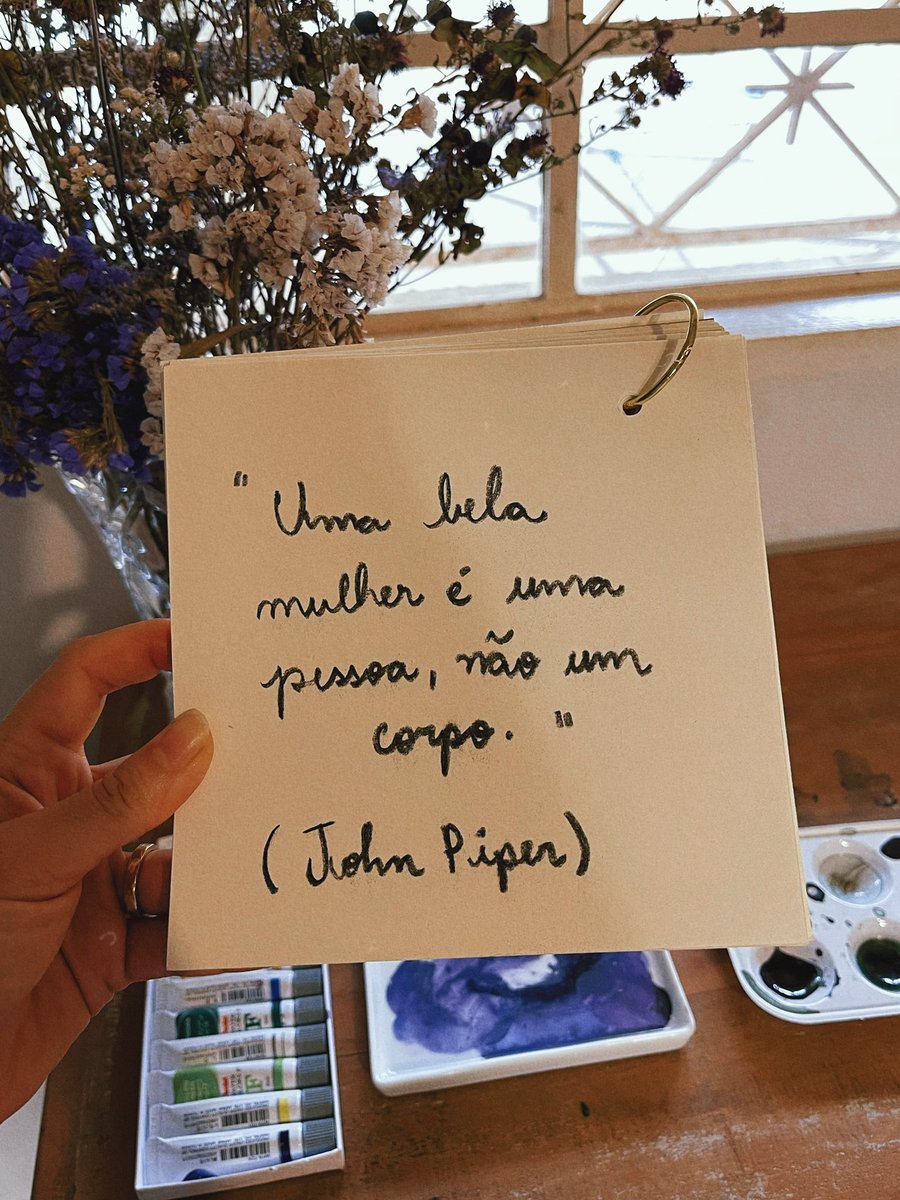 "Uma bela
mulher é uma
pessoa, não um
corpo."
(John Piper)